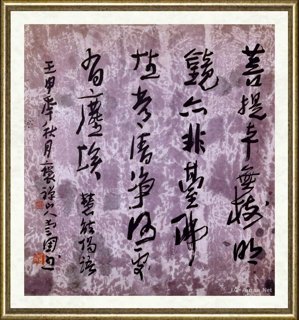 菩提本無樹明
鏡亦非臺佛
性常清淨何處
有塵埃 慧能偈語
壬申年秋月